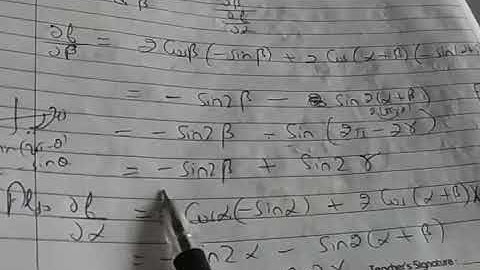 β ∂f/∂α
∂f/∂β = 2 Cosβ (-sinβ) + 2 Cos(α+β) (-sin(α+
= - Sin2β - Sin 2(α+β)
= - Sin2β - Sin (2π - 2γ)
= - Sin2β + Sin2γ
∂f/∂α = Cosα(-Sinα) + 2 Cos(α+β)
= - Sin2α - Sin2(α+β)
Teacher's Signature :